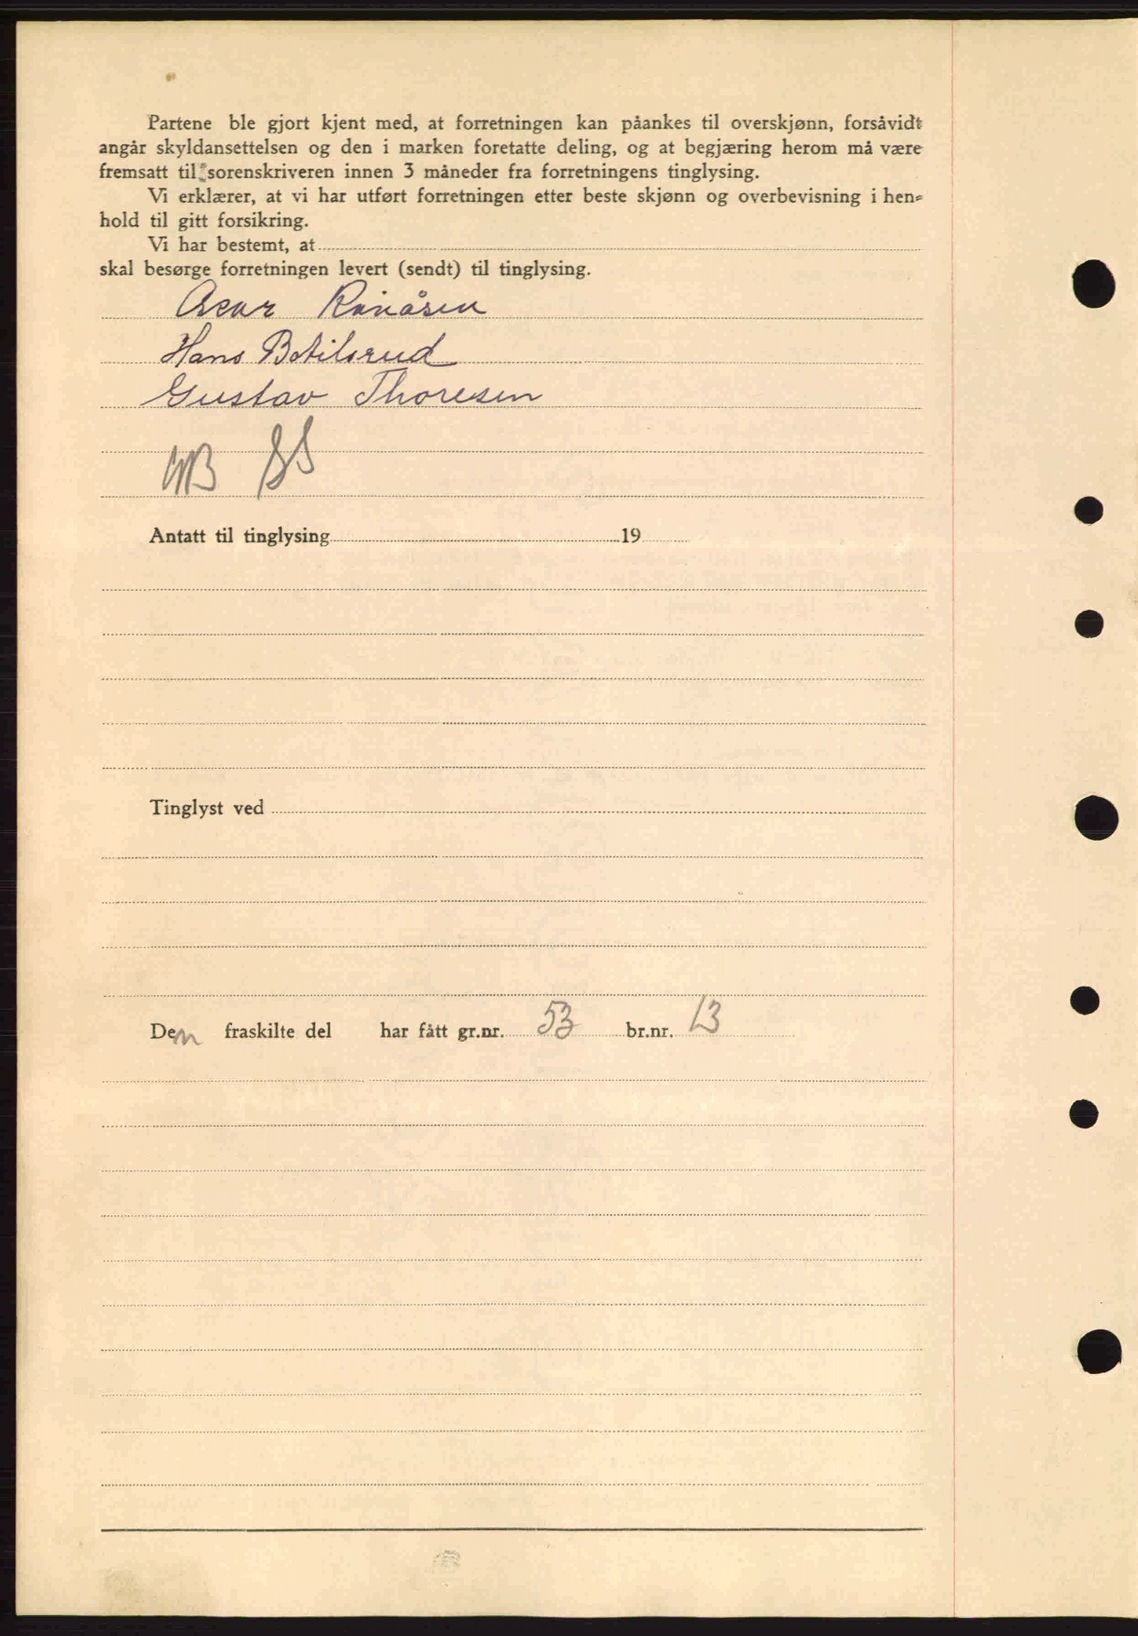 Partene ble gjort kjent med, at forretningen kan påankes til overskjønn, forsåvidt
angår skyldansettelsen og den i marken foretatte deling, og at begjæring herom må være
fremsatt til sorenskriveren innen 3 måneder fra forretningens tinglysing.
Vi erklærer, at vi har utført forretningen etter beste skjønn og overbevisning i hen-
hold til gitt forsikring.
Vi har bestemt, at
skal besørge forretningen levert (sendt) til tinglysing.
Hans Botilsrud
Gustav Thoresen
Antatt til tinglysing 19
Tinglyst ved
Den fraskilte del har fått gr.nr. 53 br.nr. 13